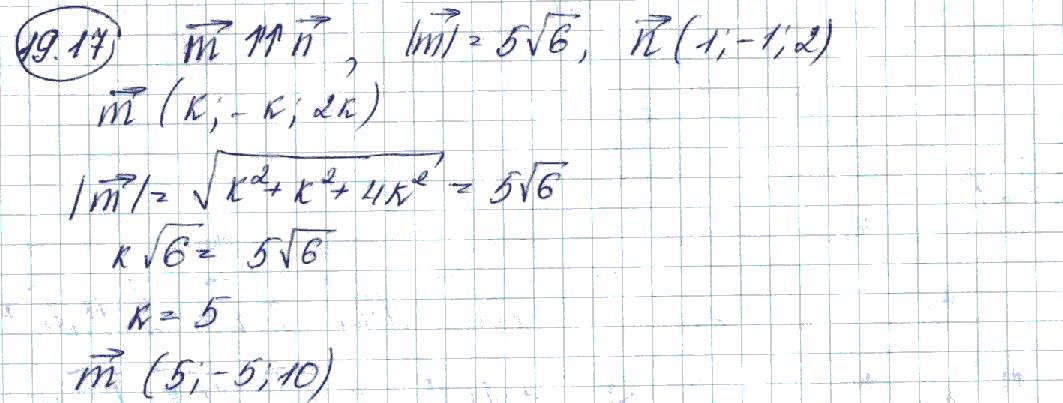 19.17) m⃗ ↑↑ n⃗, |m⃗| = 5√6, n⃗ (1; -1; 2)
m⃗ (k; -k; 2k)
|m⃗| = √(k² + k² + 4k²) = 5√6
k√6 = 5√6
k = 5
m⃗ (5; -5; 10)